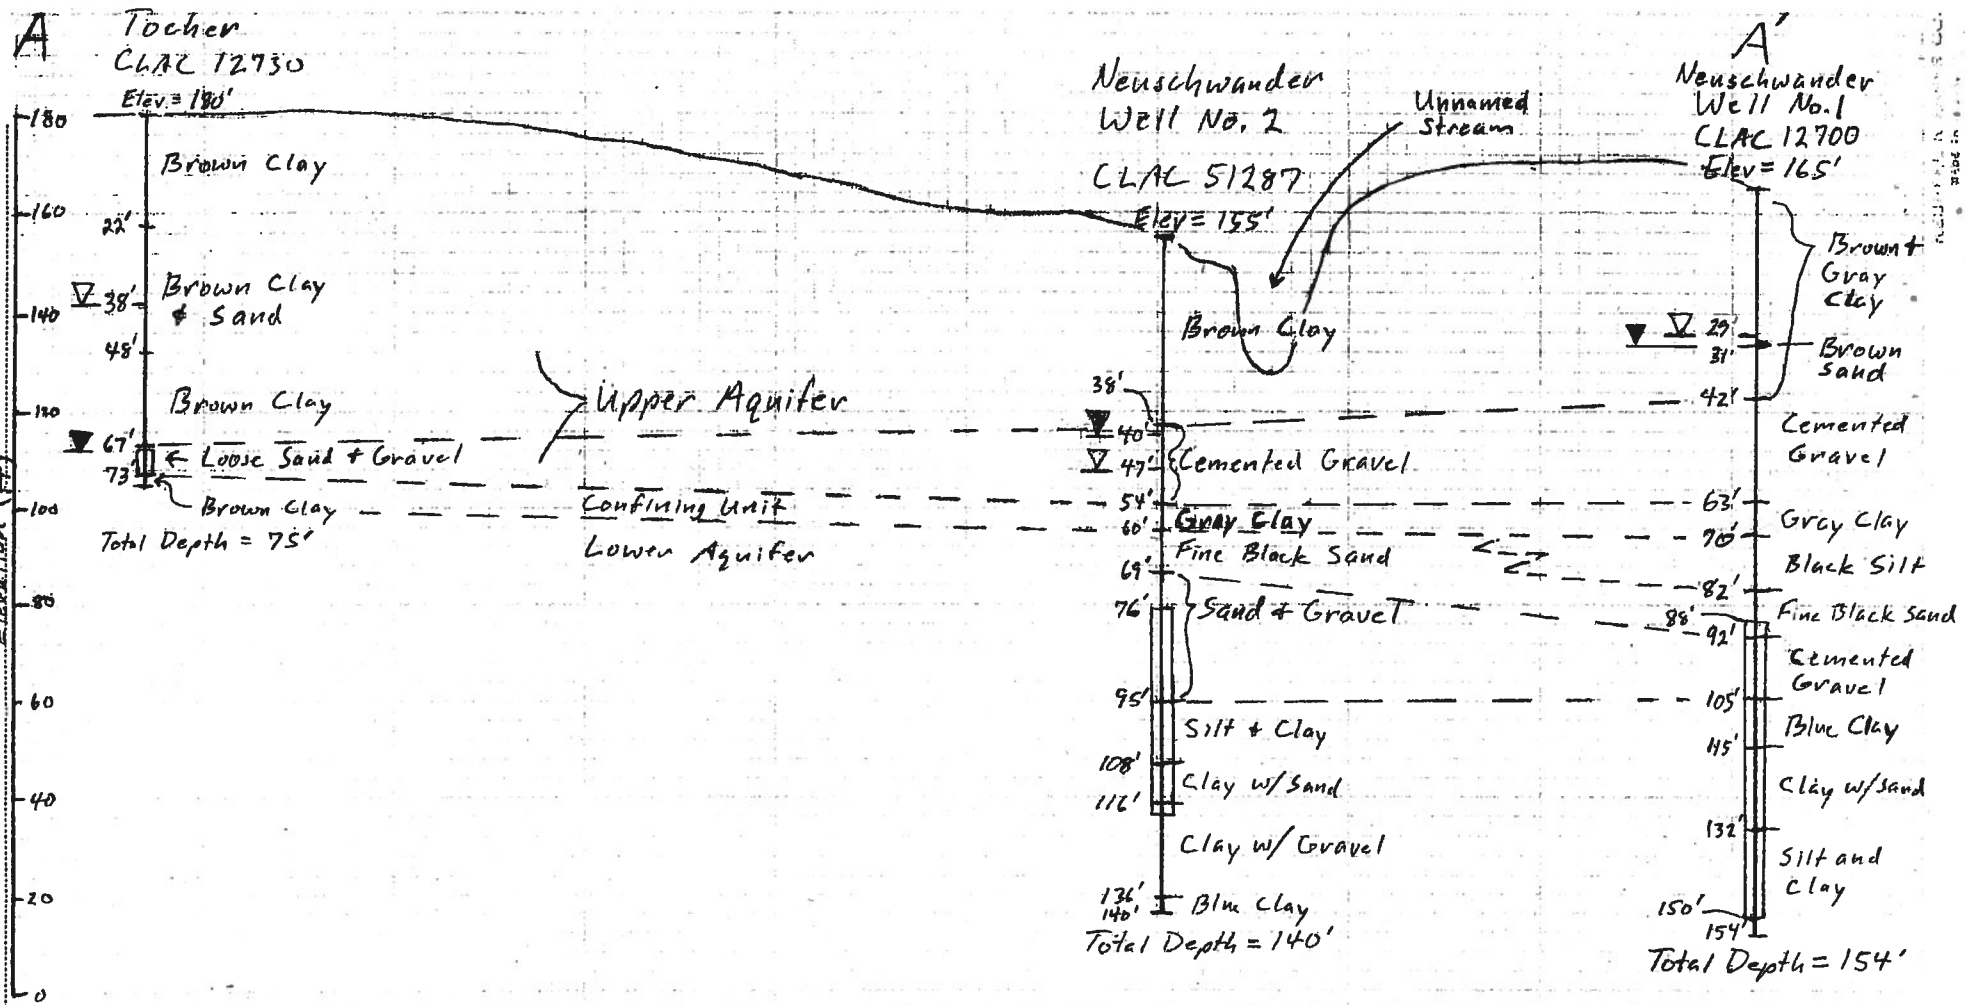 A
Tocher
CLAC 12730
Elev = 180'
180
160
140
120
100
80
60
40
20
0
Brown Clay
22'
Brown Clay
& Sand
38'
48'
Brown Clay
67'
Loose Sand + Gravel
73'
Brown Clay
Total Depth = 75'
Upper Aquifer
Confining Unit
Lower Aquifer
Neuschwander
Well No. 2
CLAC 51287
Elev = 155'
Unnamed
Stream
Brown Clay
38'
40'
47'
Cemented Gravel
54'
Gray Clay
60'
Fine Black Sand
69'
76'
Sand & Gravel
95'
Silt & Clay
108'
Clay w/Sand
116'
Clay w/ Gravel
136'
140'
Blue Clay
Total Depth = 140'
A'
Neuschwander
Well No. 1
CLAC 12700
Elev = 165'
Brown &
Gray
Clay
29'
31'
Brown
Sand
42'
Cemented
Gravel
63'
Gray Clay
70'
Black Silt
82'
Fine Black Sand
88'
92'
Cemented
Gravel
105'
Blue Clay
115'
Clay w/sand
132'
Silt and
Clay
150'
154'
Total Depth = 154'